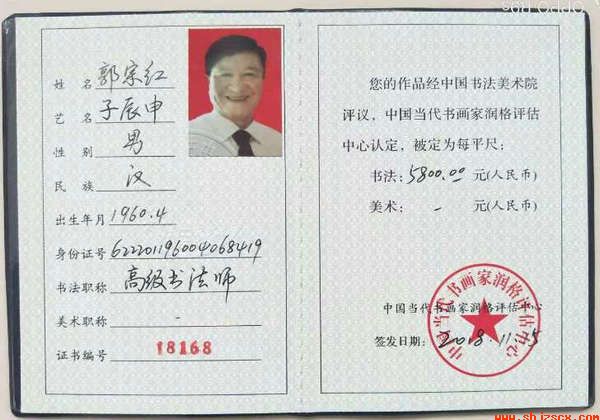 姓名 郭宗红
艺名 子辰申
性别 男
民族 汉
出生年月 1960.4
身份证号 622201196004068419
书法职称 高级书法师
美术职称 -
证书编号 18168
您的作品经中国书法美术院
评议，中国当代书画家润格评估
中心认定，被定为每平尺：
书法：5800.00 元(人民币)
美术： - 元(人民币)
中国当代书画家润格评估中心
签发日期：2018.11.25
中国当代书画家润格评估中心
www.sbjzscx.com